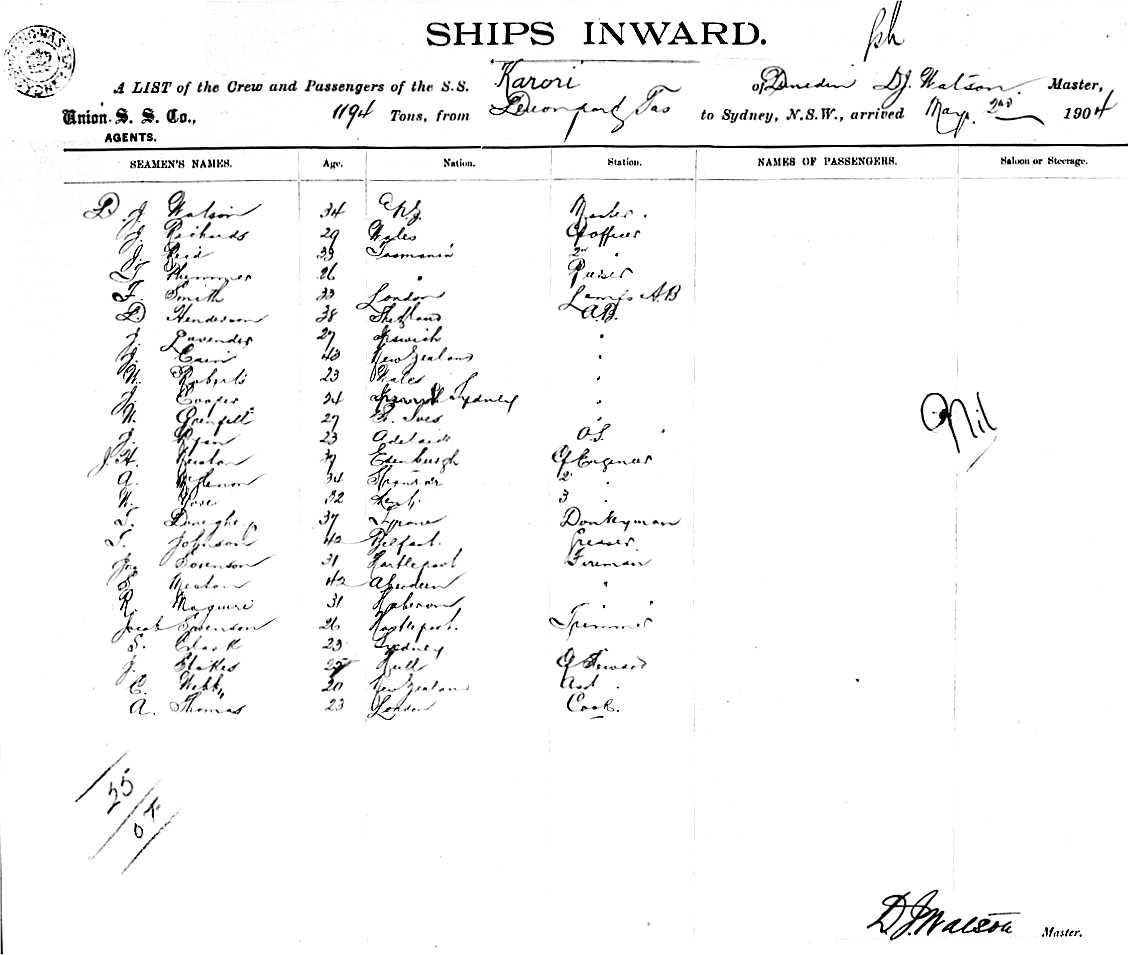 SHIPS INWARD.
A LIST of the Crew and Passengers of the S.S. Karori of Dunedin D.J. Watson Master,
Union S. S. Co., 1194 Tons, from Devonport Tas to Sydney, N.S.W., arrived May 2nd 1904
AGENTS.
SEAMEN'S NAMES. Age. Nation. Station. NAMES OF PASSENGERS. Saloon or Steerage.
D. J Watson 34 NZ Master.
J. Richards 29 Wales Cf officer
J. Reid 33 Tasmania 2nd "
26 " Purser
F. Smith 33 London Lamps AB
D Henderson 38 Shetland A.B.
J. Lavender 27 Ipswich "
J. Cain 43 New Zealand "
W. Roberts 23 Wales "
J. Cooper 34 Sydney "
W. Grenfell 29 St. Ives
J. Ryan 23 Adelaide O.S. "
J. H. 39 Edenburgh Cf Engineer
A. 34 2 "
W. 32 3 "
T. 37 Tyrone Donkyman
T. Johnson 42 Belfast. Greaser.
Jno Sorenson 31 Hartlepool Fireman
42 Aberdeen "
R. Maguire 31 " "
Jacob Swenson 26 Hartlepool. Trimmer
S. Clark 23 Sydney
J. Stokes 25 Hull Cf Steward
C. Webb 20 New Zealand Asst.
A. Thomas 23 London Cook.
Nil
25
D J Watson Master.